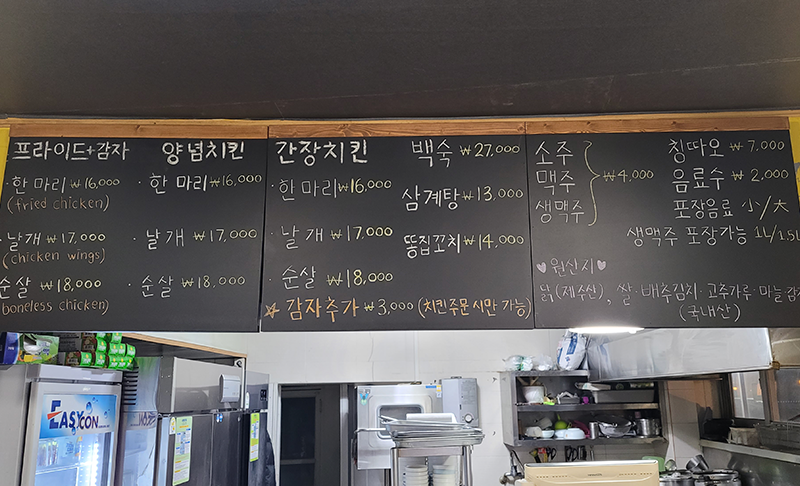 프라이드+감자
· 한 마리 ₩16,000
(fried chicken)
· 날개 ₩17,000
(chicken wings)
순살 ₩18,000
(boneless chicken)
양념치킨
· 한 마리 ₩16,000
· 날개 ₩17,000
· 순살 ₩18,000
간장치킨
· 한 마리 ₩16,000
· 날개 ₩17,000
· 순살 ₩18,000
백숙 ₩27,000
삼계탕 ₩13,000
똥집꼬치 ₩14,000
☆ 감자추가 ₩3,000 (치킨 주문 시만 가능)
소주
맥주
생맥주
₩4,000
칭따오 ₩7,000
음료수 ₩2,000
포장음료 小/大
생맥주 포장가능 1L/1.5L
♥원산지♥
닭(제주산), 쌀·배추김치·고추가루·마늘
(국내산)
EASYCON